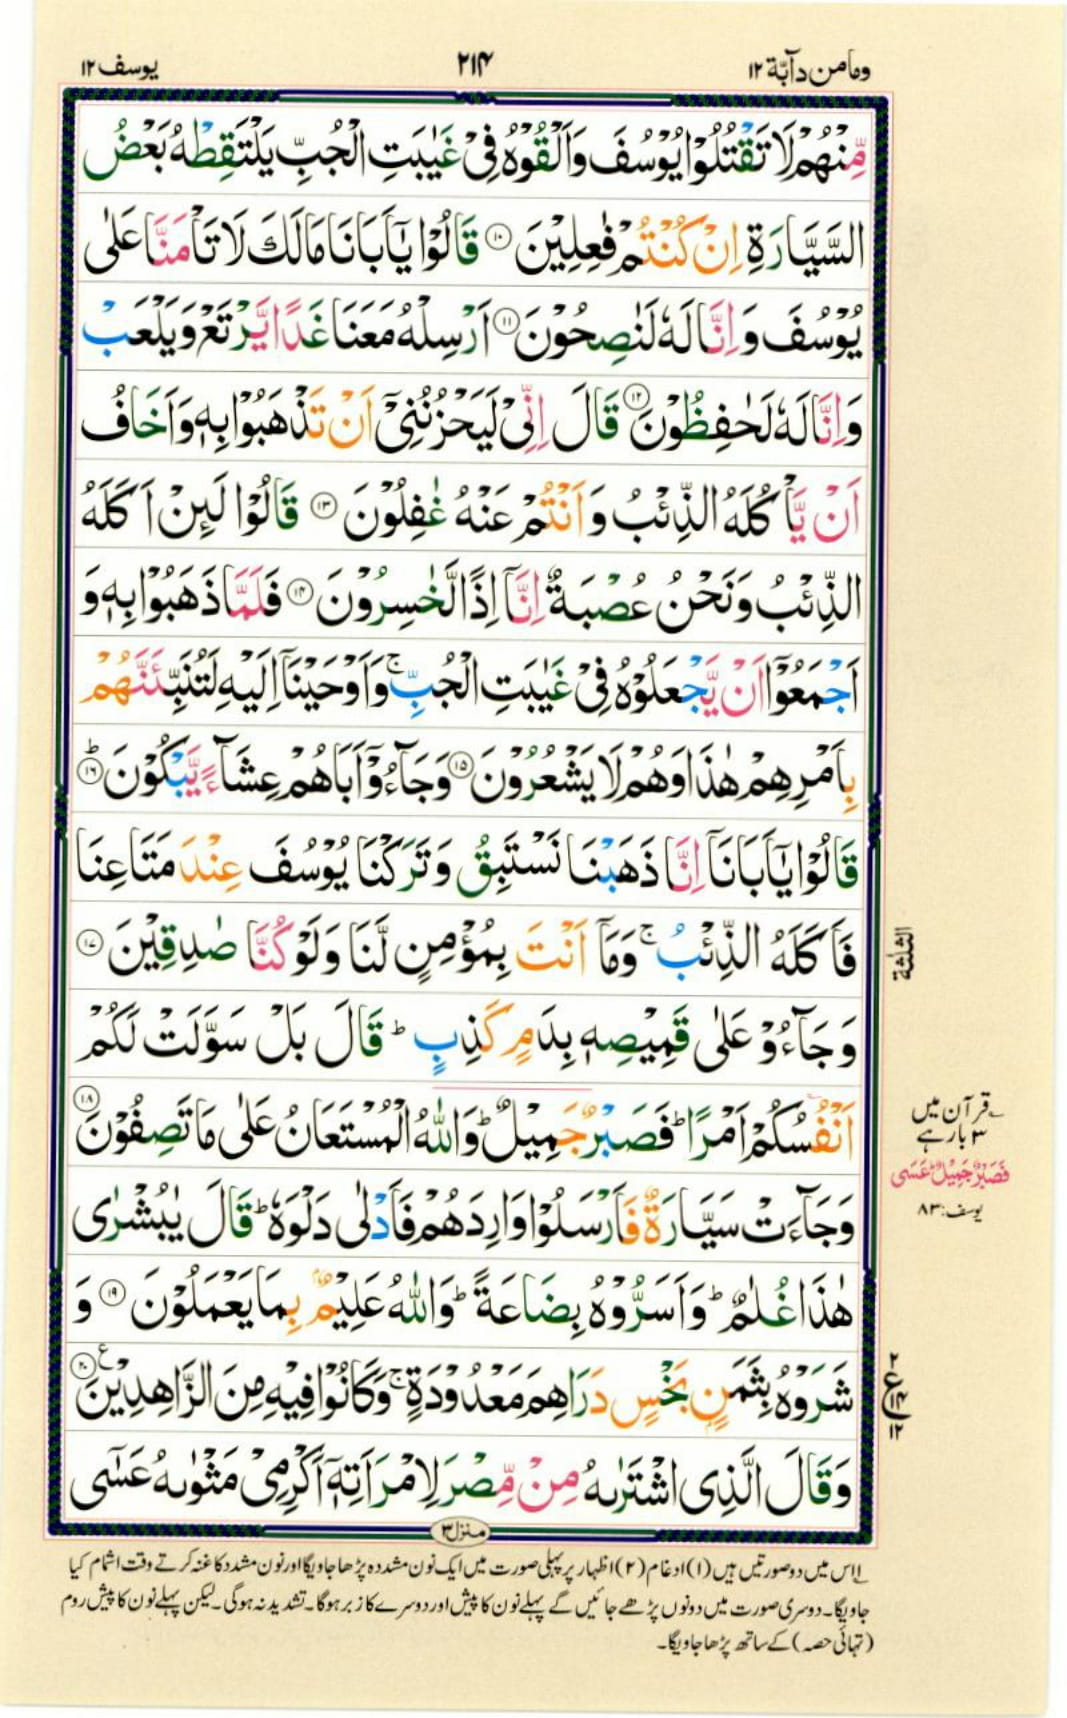 وما من دآبّة ١٢
٢١٤
يوسف ١٢
مِّنْهُمْ لَا تَقْتُلُوْا يُوْسُفَ وَاَلْقُوْهُ فِىْ غَيٰبَتِ الْجُبِّ يَلْتَقِطْهُ بَعْضُ
السَّيَّارَةِ اِنْ كُنْتُمْ فٰعِلِيْنَ ١٠ قَالُوْا يٰۤاَبَانَا مَالَكَ لَا تَاْمَنَّا عَلٰى
يُوْسُفَ وَ اِنَّا لَهٗ لَنٰصِحُوْنَ ١١ اَرْسِلْهُ مَعَنَا غَدًا يَّرْتَعْ وَيَلْعَبْ
وَاِنَّا لَهٗ لَحٰفِظُوْنَ ١٢ قَالَ اِنِّىْ لَيَحْزُنُنِىْۤ اَنْ تَذْهَبُوْا بِهٖ وَاَخَافُ
اَنْ يَّاْكُلَهُ الذِّئْبُ وَ اَنْتُمْ عَنْهُ غٰفِلُوْنَ ١٣ قَالُوْا لَئِنْ اَكَلَهُ
الذِّئْبُ وَنَحْنُ عُصْبَةٌ اِنَّاۤ اِذًا لَّخٰسِرُوْنَ ١٤ فَلَمَّا ذَهَبُوْا بِهٖ وَ
اَجْمَعُوْۤا اَنْ يَّجْعَلُوْهُ فِىْ غَيٰبَتِ الْجُبِّ ۚ وَاَوْحَيْنَاۤ اِلَيْهِ لَتُنَبِّئَنَّهُمْ
بِاَمْرِهِمْ هٰذَا وَهُمْ لَا يَشْعُرُوْنَ ١٥ وَجَآءُوْۤ اَبَاهُمْ عِشَآءً يَّبْكُوْنَ ؕ ١٦
قَالُوْا يٰۤاَبَانَاۤ اِنَّا ذَهَبْنَا نَسْتَبِقُ وَتَرَكْنَا يُوْسُفَ عِنْدَ مَتَاعِنَا
فَاَكَلَهُ الذِّئْبُ ۚ وَمَاۤ اَنْتَ بِمُؤْمِنٍ لَّنَا وَلَوْ كُنَّا صٰدِقِيْنَ ١٧
وَجَآءُوْ عَلٰى قَمِيْصِهٖ بِدَمٍ كَذِبٍ ؕ قَالَ بَلْ سَوَّلَتْ لَكُمْ
اَنْفُسُكُمْ اَمْرًا ؕ فَصَبْرٌ جَمِيْلٌ ؕ وَاللّٰهُ الْمُسْتَعَانُ عَلٰى مَا تَصِفُوْنَ ١٨
وَجَآءَتْ سَيَّارَةٌ فَاَرْسَلُوْا وَارِدَهُمْ فَاَدْلٰى دَلْوَهٗ ؕ قَالَ يٰبُشْرٰى
هٰذَا غُلٰمٌ ؕ وَاَسَرُّوْهُ بِضَاعَةً ؕ وَاللّٰهُ عَلِيْمٌۢ بِمَا يَعْمَلُوْنَ ١٩ وَ
شَرَوْهُ بِثَمَنٍۢ بَخْسٍ دَرَاهِمَ مَعْدُوْدَةٍ ۚ وَكَانُوْا فِيْهِ مِنَ الزَّاهِدِيْنَ ع ٢٠
وَقَالَ الَّذِى اشْتَرٰىهُ مِنْ مِّصْرَ لِامْرَاَتِهٖۤ اَكْرِمِىْ مَثْوٰىهُ عَسٰٓى
الثلثة
قرآن میں
٣ بار ہے
فَصَبْرٌ جَمِيْلٌ ؕ عَسَى
یوسف: ٨٣
٢
ع
١٤
١٢
منزل ٣
اس میں دو صورتیں ہیں (١) ادغام (٢) اظہار پر پہلی صورت میں ایک نون مشدد پڑھا جاویگا اور نون مشدد کا غنہ کرتے وقت اشمام کیا
جاویگا۔ دوسری صورت میں دونوں پڑھے جائیں گے پہلے نون کا پیش اور دوسرے کا زبر ہوگا۔ تشدید نہ ہوگی۔ لیکن پہلے نون کا پیش روم
(تہائی حصہ) کے ساتھ پڑھا جاویگا۔